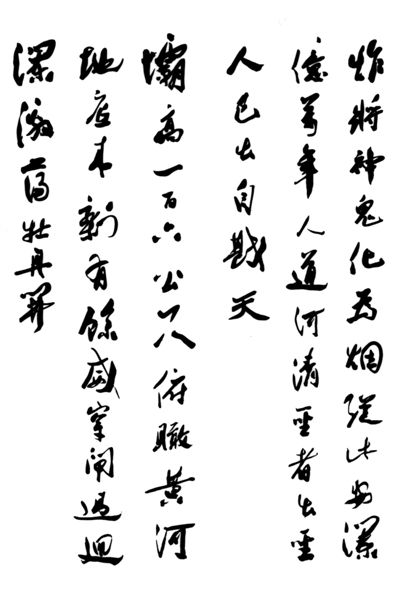 炸將神鬼化為烟從此安瀾
億萬年人道河清聖者出聖
人已出自戡天
壩高一百六公尺俯瞰黃河
地底來剩有餘威穿閘過迴
瀾激蕩牡丹開